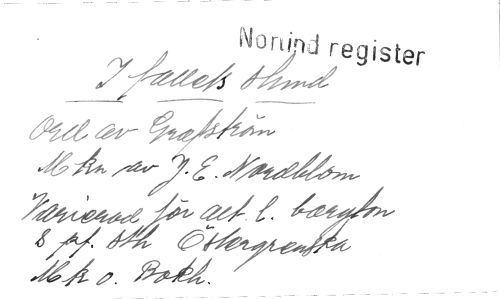 Norlind register
I fallets stund
Ord av Grafström
Mkn av J. E. Nordblom
Varierad för alt. l. baryton
& pf. Sth Östergrenska
Mk o. Bokh.